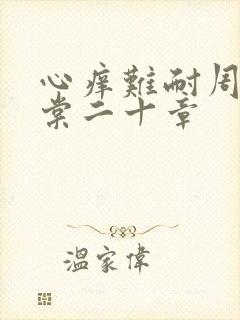 心痒難耐周
棠二十章
溫家偉